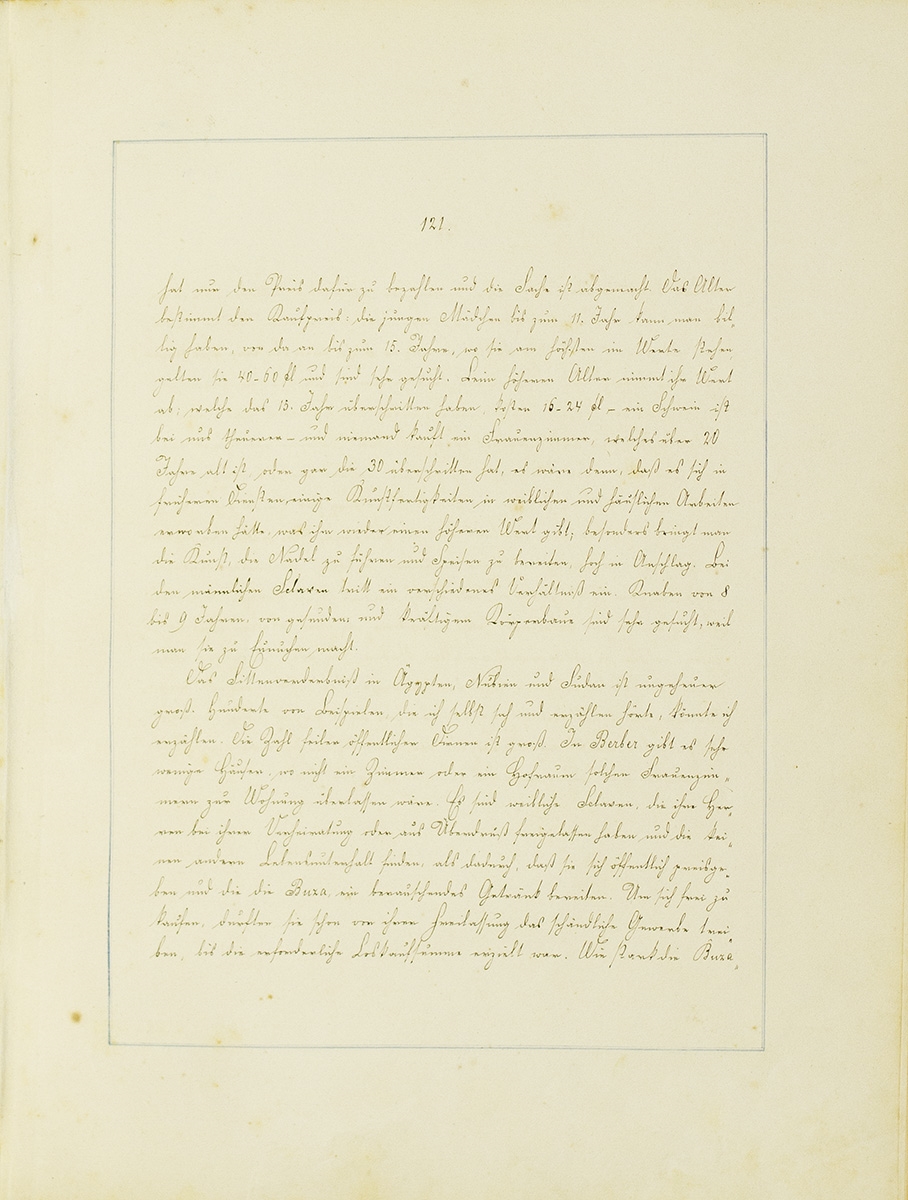 121.
hat nur den Preis dafür zu bezahlen und die Sache ist abgemacht. Das Alter
bestimmt den Kaufpreis: die jungen Mädchen bis zum 11. Jahr kann man bil-
lig haben, von da an bis zum 15. Jahre, wo sie am höchsten im Werte stehen,
gelten sie 40-60 fl und sind sehr gesucht. Beim höheren Alter nimmt ihr Wert
ab; welche das 15. Jahr überschritten haben, kosten 16-24 fl – ein Schwein ist
bei uns theuerer – und niemand kauft ein Frauenzimmer, welches über 20
Jahre alt ist, oder gar die 30 überschritten hat, es wäre denn, daß es sich in
früheren Diensten einige Kunstfertigkeiten in weiblichen und häuslichen Arbeiten
erworben hätte, was ihm wieder einen höheren Wert gibt; besonders bringt man
die Kunst, die Nadel zu führen und Speisen zu bereiten, hoch in Anschlag. Bei
den männlichen Sclaven tritt ein verschiedenes Verhältniß ein. Knaben von 8
bis 9 Jahren, von gesundem und kräftigem Körperbaue sind sehr gesucht, weil
man sie zu Eunuchen macht.
Das Sittenverderbniß in Ägypten, Nubien und Sudan ist ungeheuer
groß. Hunderte von Beispielen, die ich selbst sah und erzählen hörte, könnte ich
erzählen. Die Zahl feiler öffentlicher Dirnen ist groß. In Berber gibt es sehr
wenige Häuser, wo nicht ein Zimmer oder ein Hofraum solchen Frauenzim-
mern zur Wohnung überlassen wäre. Es sind weibliche Sclaven, die ihre Her-
ren bei ihrer Verheiratung oder aus Überdruß freigelassen haben und die kei-
nen andern Lebensunterhalt finden, als dadurch, daß sie sich öffentlich preisge-
ben und die die Buza, ein berauschendes Getränk bereiten. Um sich frei zu
kaufen, dürften sie schon vor ihrer Freilassung das schändliche Gewerbe trei-
ben, bis die erforderliche Loskaufsumme erzielt war. Wie stark die Buza-